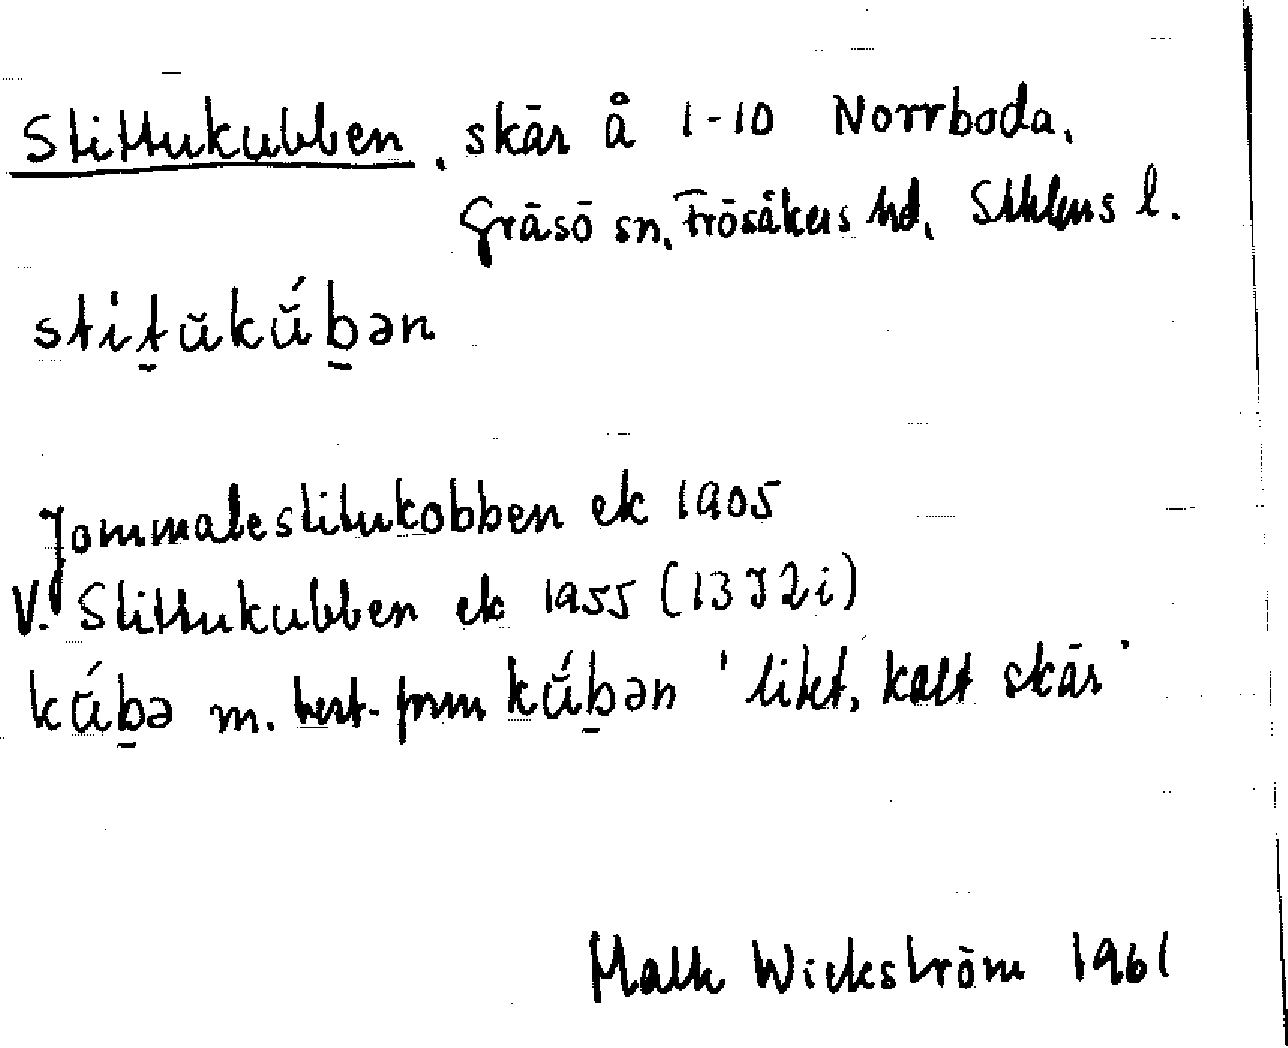 Stittukubben, skär å 1-10 Norrboda,
Gräsö sn, Frösåkers hd, Sthlms l.
stit̠ŭkŭ́b̠ən
Jommalestitukobben ek 1905
V. Stittukubben ek 1955 (13 I 2 i)
kŭ́b̠ə m. best. form kŭ́b̠ən 'litet, kalt skär'
Wickström 1961